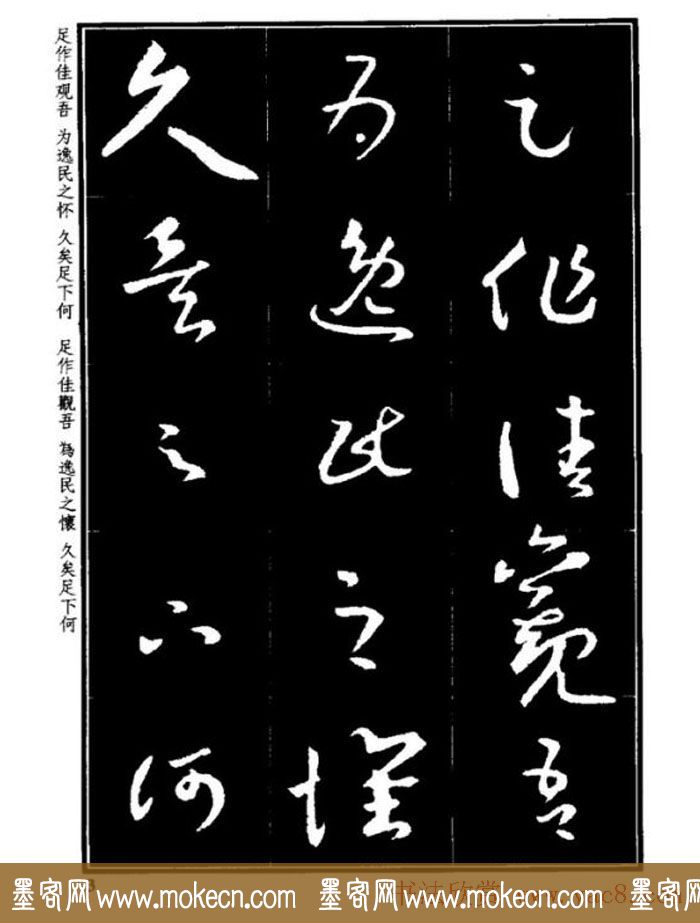 足作佳觀吾
為逸民之懷
久矣足下何
足作佳观吾 为逸民之怀 久矣足下何
足作佳觀吾 為逸民之懷 久矣足下何
墨客网www.mokecn.com 墨客网www.mokecn.com 墨客网
书法欣赏